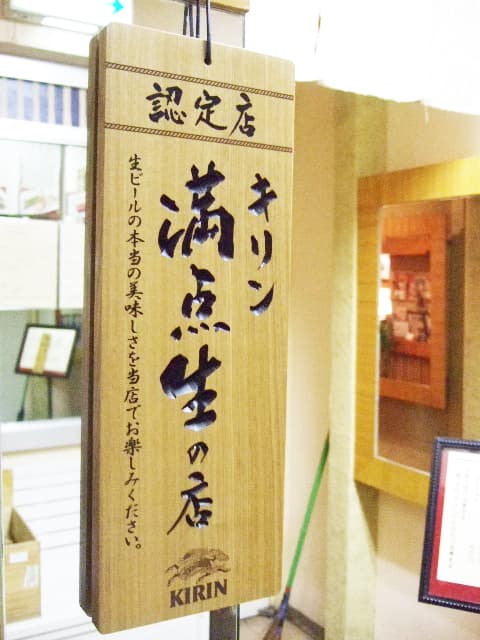 認定店
キリン
満点生の店
生ビールの本当の美味しさを当店でお楽しみください。
KIRIN